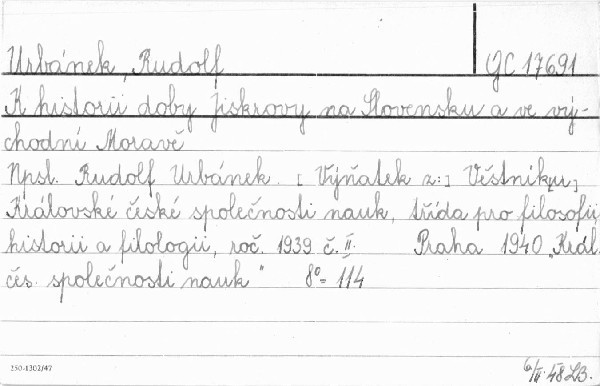 Urbánek, Rudolf GC 17691
K historii doby jiskrovy na Slovensku a ve vý-
chodní Moravě
Npsl. Rudolf Urbánek. [Výňatek z:] Věstník[u]
Královské české společnosti nauk, třída pro filosofii,
historii a filologii, roč. 1939 č. II. Praha 1940 „Král.
čes. společnosti nauk" 8°= 114
250-1302/47
6/II. 48 LB.